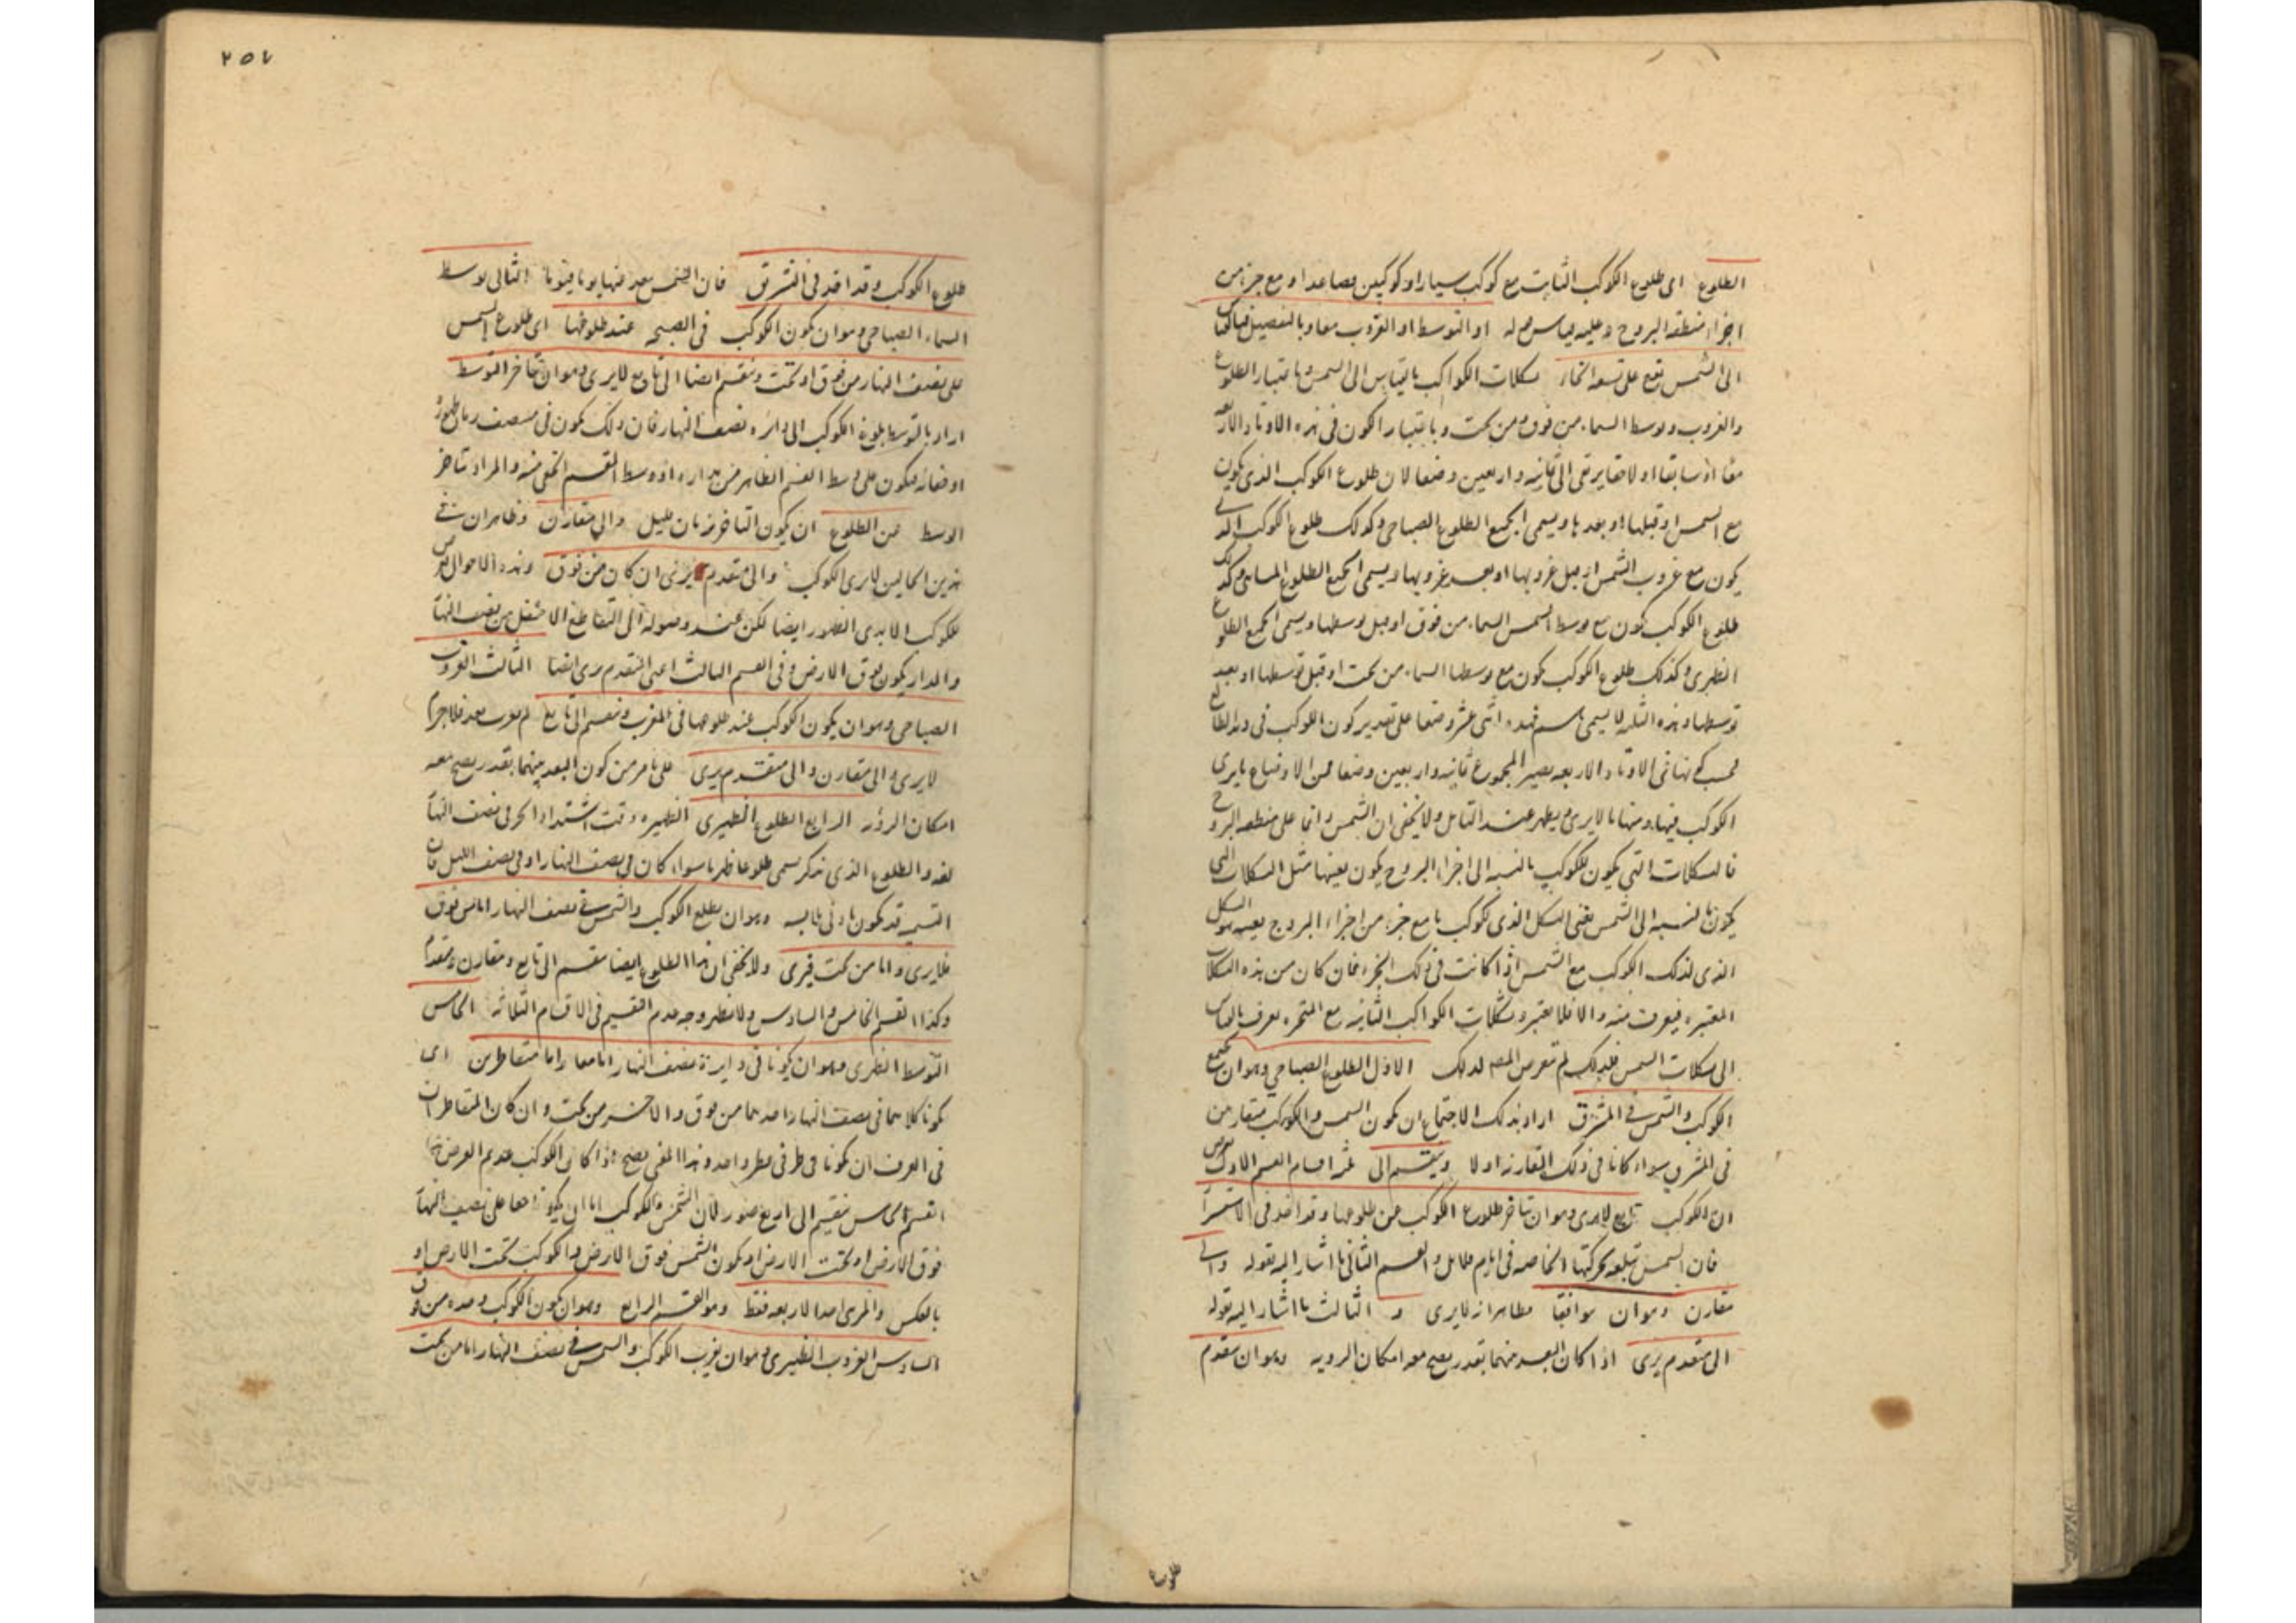 الطلوع ای طلوع الکوکب الثابت مع کوکب سیار او کوکبین فصاعدا او مع جزء من
اجزاء منطقه البروج و علیه او التوسط او الغروب معا و بالتفصیل
الی الشمس تقع علی تسعه انحاء شکلات الکواکب بالقیاس الی الشمس و باعتبار الطلوع
والغروب و توسط السماء من فوق و من تحت و باعتبار الکون فی هذه الاوتاد الاربعه
معا او سابقا او لاحقا یرتقی الی ثمانیه و اربعین وضعا لان طلوع الکوکب الذی یکون
مع الشمس او قبلها او بعدها و یسمی الجمیع الطلوع الصباحی و کذلک طلوع الکوکب الذی
یکون مع غروب الشمس او قبل غروبها او بعد غروبها و یسمی الجمیع الطلوع المسائی و کذلک
طلوع الکوکب یکون مع توسط الشمس السماء من فوق او قبل توسطها و یسمی الجمیع الطلوع
النظری و کذلک طلوع الکوکب یکون مع توسطها السماء من تحت او قبل توسطها او بعد
توسطها و هذه الثلثه لا یسمی باسم فهذه اثنی عشر وضعا علی تقدیر کون الکوکب فی وتد الطالع
فی الاوتاد الاربعه یصیر المجموع ثمانیه و اربعین وضعا فمن الاوضاع ما یری
الکوکب فیها و منها ما لا یری و یظهر عند التامل و لا یخفی ان الشمس دائما علی منطقه البروج
فالشکلات التی یکون للکوکب بالنسبه الی اجزاء البروج یکون بعینها مثل الشکلات التی
یکون بالنسبه الی الشمس یعنی الشکل الذی لکوکب ما مع جزء من اجزاء البروج بعینه هو الشکل
الذی لذلک الکوکب مع الشمس اذا کانت فی ذلک الجزء فان کان من هذه الشکلات
المعتبره فیعرف منه و الا فلا یعتبر و شکلات الکواکب الثابته مع المتحیره یعرف بالقیاس
الی شکلات الشمس فلذلک لم یتعرض المصـ لذلک الاول الطلوع الصباحی و هو ان یجتمع
الکوکب و الشمس فی المشرق اراد بذلک الاجتماع ان یکون الشمس و الکوکب متقارنین
فی المشرق سواء کانا فی ذلک التقارن او لا و ینقسم الی ثلثه اقسام القسم الاول
ان الکوکب تابع لا یری و هو ان یتاخر طلوع الکوکب عن طلوعها و قد اخذ فی الاستتار
فان الشمس تبلغه بحرکتها الخاصه فی ایام قلائل و القسم الثانی ما اشار الیه بقوله و الی
مقارن و هو ان یوافقا لا یری و الثالث ما اشار الیه بقوله
الی متقدم یری اذا کان البعد بینهما بقدر یصح معه امکان الرویه و هو ان یتقدم
طلوع
٢٥٧
طلوع الکوکب و قد اخذ فی التشرق فان الشمس یبعد عنها یوما فیوما الثانی توسط
السماء الصباحی و هو ان یکون الکوکب فی الصبح عند طلوعها ای طلوع الشمس
علی نصف النهار من فوق او تحت و ینقسم ایضا الی تابع لا یری و هو ان یتاخر التوسط
اراد بالتوسط بلوغ الکوکب الی دائره نصف النهار فان ذلک یکون فی منتصف زمان ظهوره
او خفائه فیکون علی وسط القسم الظاهر من مداره او وسط القسم الخفی منه و المراد بتاخر
الوسط عن الطلوع ان یکون التاخر زمان قلیل و الی مقارن و ظاهر ان فی
هذین الحالین لا یری الکوکب و الی متقدم یری ان کان من فوق و هذه الاحوال
للکوکب الابدی الظهور ایضا لکن عند وصوله الی التقاطع الاسفل من نصف النهار
و المدار یکون فوق الارض و فی القسم الثالث اعنی المتقدم یری ایضا الثالث الغروب
الصباحی و هو ان یکون الکوکب عند طلوعها فی المغرب و ینقسم الی تابع لم یغرب بعد فلا جرم
لا یری و الی مقارن و الی متقدم یری علی ما مر من کون البعد بینهما بقدر یصح معه
امکان الرؤیه الرابع الطلوع الظهیری الظهیره وقت اشتداد الحر فی نصف النهار
لغه و الطلوع الذی نذکر یسمی طلوعا ظهریا سواء کان فی نصف النهار او فی نصف اللیل فان
التسمیه قد یکون بادنی ملابسه و هو ان یطلع الکوکب و الشمس فی نصف النهار اما من فوق
فلا یری و اما من تحت فیری و لا یخفی ان هذا الطلوع ایضا ینقسم الی تابع و مقارن و متقدم
و کذا القسم الخامس و السادس و لا یظهر وجه عدم التقسیم فی الاقسام الثلاثه الخامس
التوسط الظهری و هو ان یکونا فی دایرة نصف النهار اما معا و اما متقاطرین ای
یکونا کلاهما فی نصف النهار احدهما من فوق و الاخر من تحت و ان کان المتقاطران
فی العرف ان یکونا فی طرفی قطر واحد و هذا المعنی یصح اذا کان الکوکب عدیم العرض
القسم الخامس ینقسم الی اربع صور لان الشمس و الکوکب اما ان یکونا معا علی نصف النهار
فوق الارض او تحت الارض او یکون الشمس فوق الارض و الکوکب تحت الارض او
بالعکس و المرئی احد الاربعه فقط و هو القسم الرابع و هو ان یکون الکوکب وحده من فوق
السادس الغروب الظهیری و هو ان یغرب الکوکب و الشمس فی نصف النهار اما من تحت